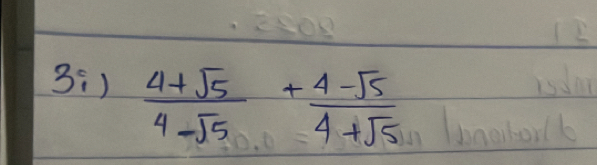 3i) (4+√5)/(4-√5) + (4-√5)/(4+√5)